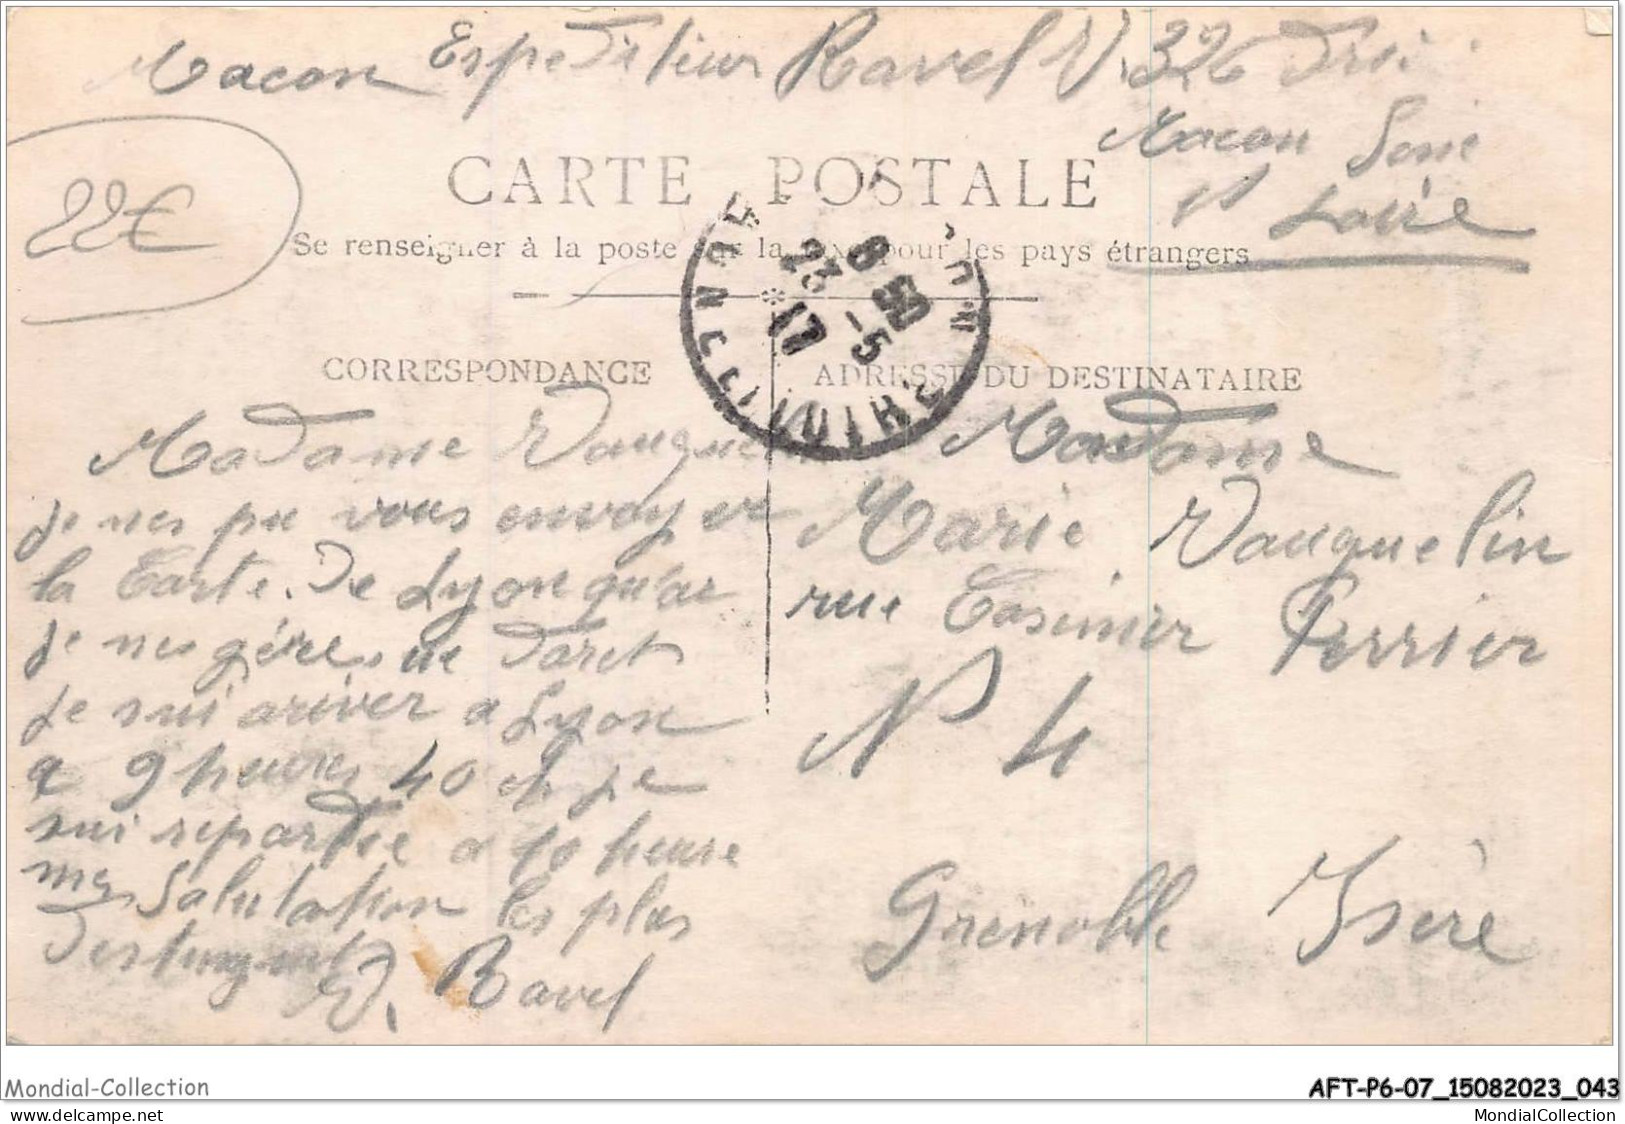 Macon Espediteur Ravel V. 326
Macon Sone
et Loire
22€
CARTE POSTALE
Se renseigner à la poste sur la taxe pour les pays étrangers
CORRESPONDANCE
ADRESSE DU DESTINATAIRE
8 50
23 -5
*17
Madame Vauquelin
Je nes pu vous envoyer
la Carte. De Lyon qu'ar
je nes gère ue Daret
Je sui ariver a Lyon
a 9 heures 40 et je
sui repardie a 10 heure
mes Salutation les plus
Destunguet
V. Ravel
Madame
Marie Vauquelin
rue Casimier Perrier
N° 4
Grenoble Isère
Mondial-Collection
AFT-P6-07_15082023_043
www.delcampe.net
MondialCollection